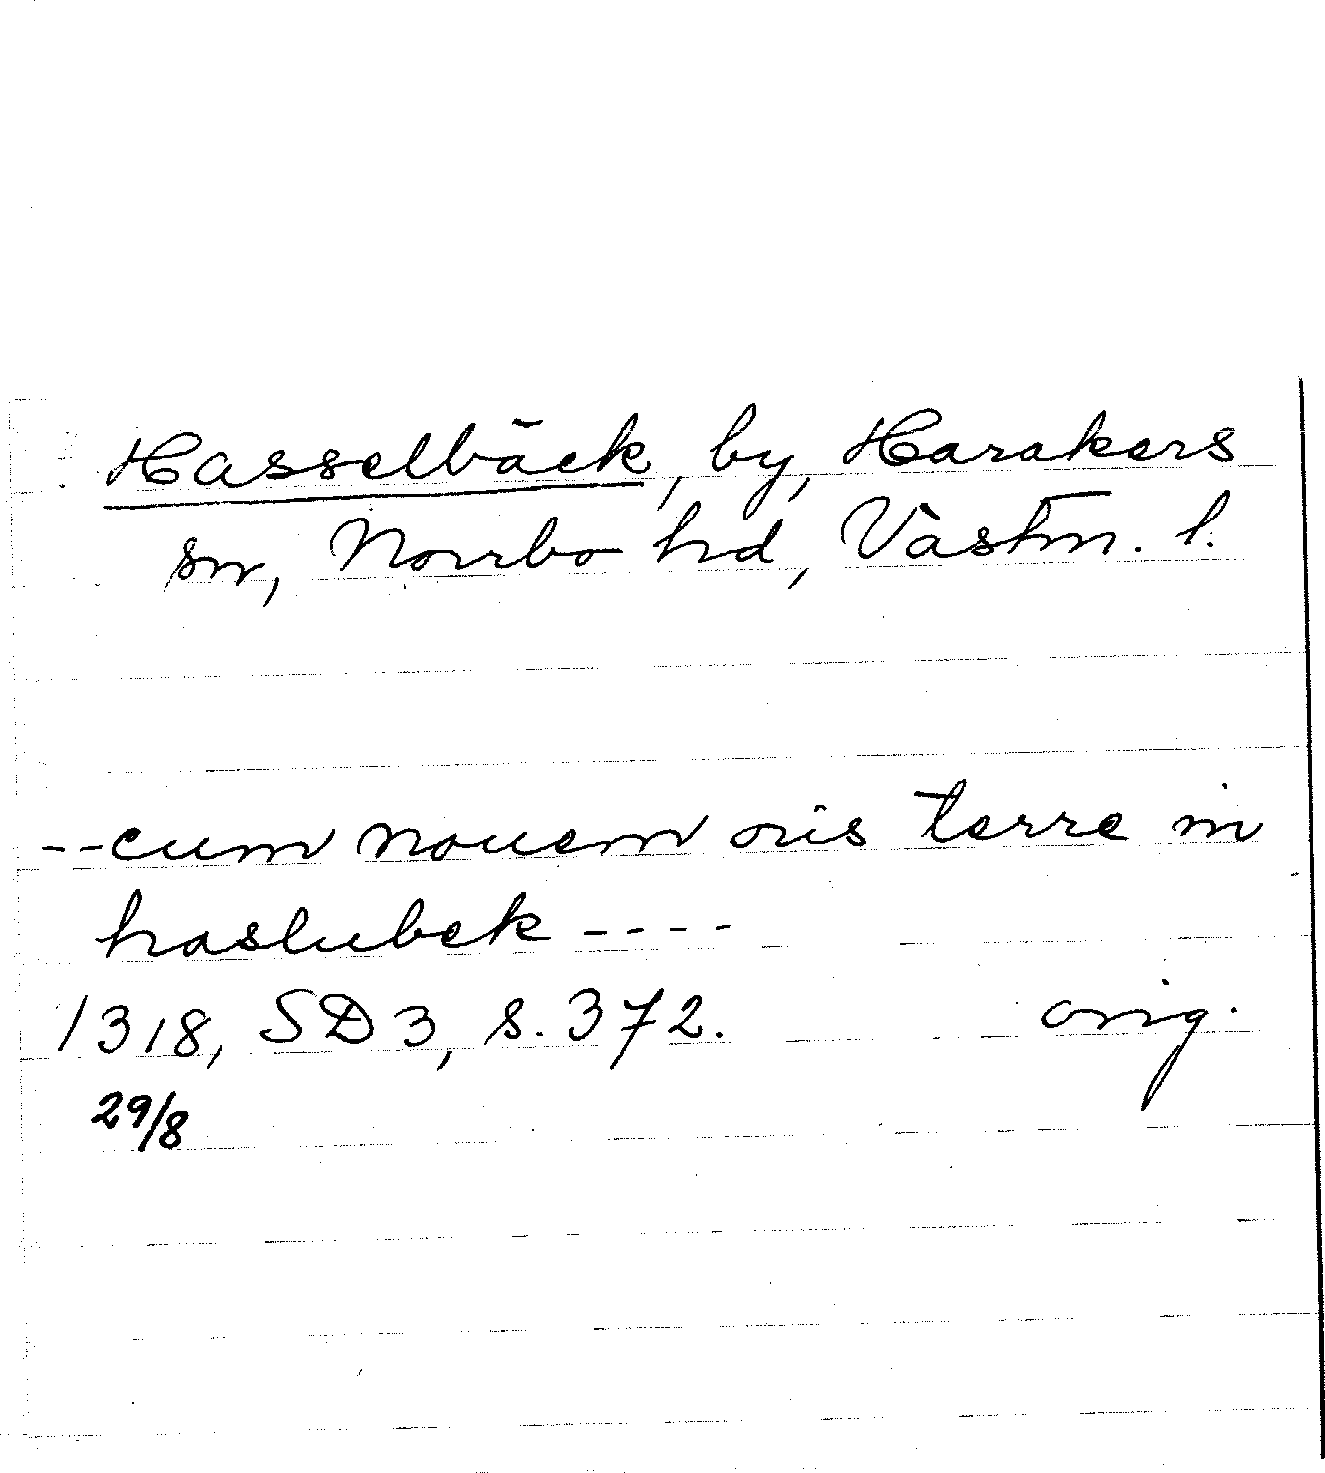 Hasselbäck, by, Harakers
sn, Norrbo hd, Västm. l.
--cum nouem oris terre in
haslubek ----
1318, SD 3, s. 372. orig.
29/8